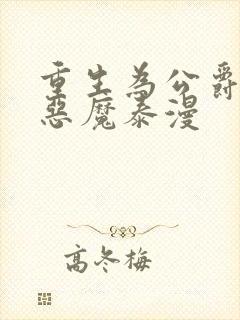 重生為公爵
惡魔泰漫
高冬梅